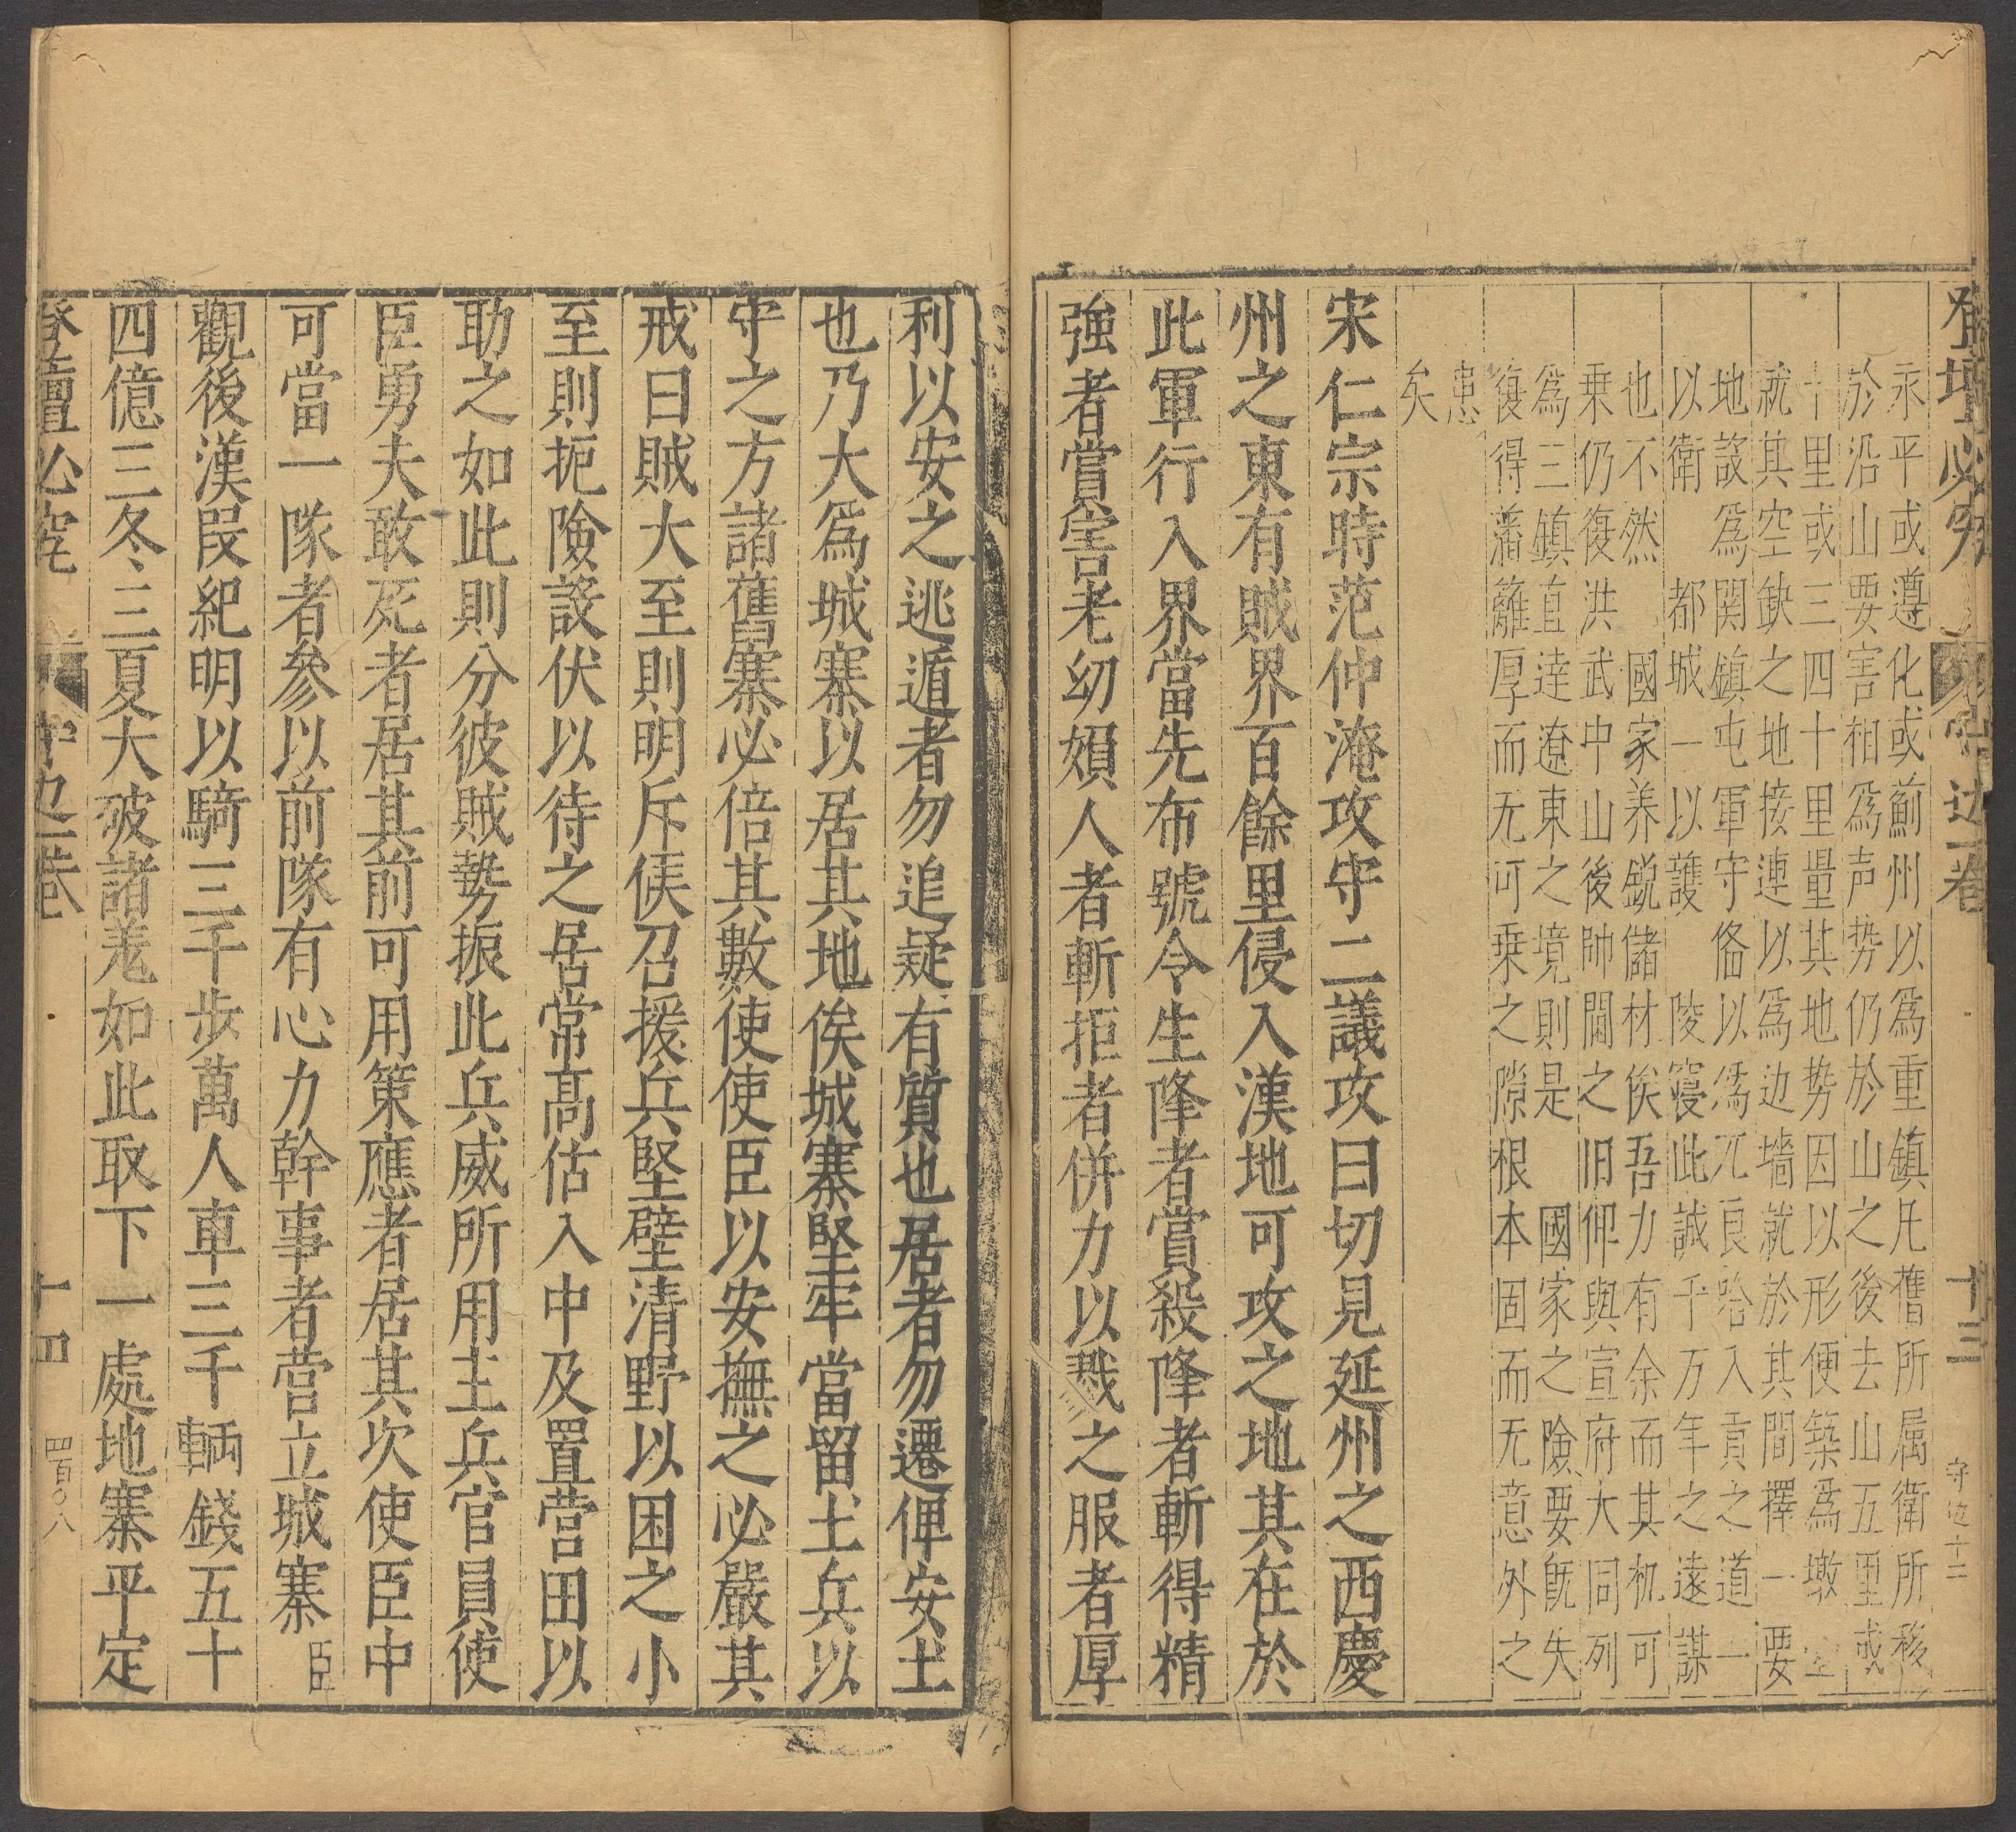 登壇必究
守边一卷
十三
守边十三
永平或遵化或薊州以爲重鎮凡舊所属衛所移
於沿山要害相爲声势仍於山之後去山五里或
十里或三四十里量其地势因以形便築爲墩
就其空缺之地接連以爲边墻就於其間擇一要
地設爲関鎮屯軍守俻以爲兀良哈入貢之道一
以衛 都城一以護 陵寝此誠千万年之遠謀
也不然 國家养鋭儲材俟吾力有余而其机可
乗仍復洪武中山後帥閫之旧仰與宣府大同列
爲三鎮直逹遼東之境則是 國家之險要旣失
復得藩籬厚而无可乗之隙根本固而无意外之
患
矣
宋仁宗時范仲淹攻守二議攻曰切見延州之西慶
州之東有賊界百餘里侵入漢地可攻之地其在於
此軍行入界當先布號令生降者賞殺降者斬得精
強者賞害老幼婦人者斬拒者併力以戮之服者厚
利以安之逃遁者勿追疑有質也居者勿遷俾安土
也乃大爲城寨以居其地俟城寨堅牢當留土兵以
守之方諸舊寨必倍其數使使臣以安撫之必嚴其
戒曰賊大至則明斥候召援兵堅壁清野以困之小
至則扼險設伏以待之居常高估入中及置营田以
助之如此則分彼賊勢振此兵威所用主兵官員使
臣勇夫敢死者居其前可用策應者居其次使臣中
可當一隊者參以前隊有心力幹事者营立城寨臣
觀後漢叚紀明以騎三千步萬人車三千輌錢五十
四億三冬三夏大破諸羌如此取下一處地寨平定
登壇必究
守边一卷
十四
四百〇八